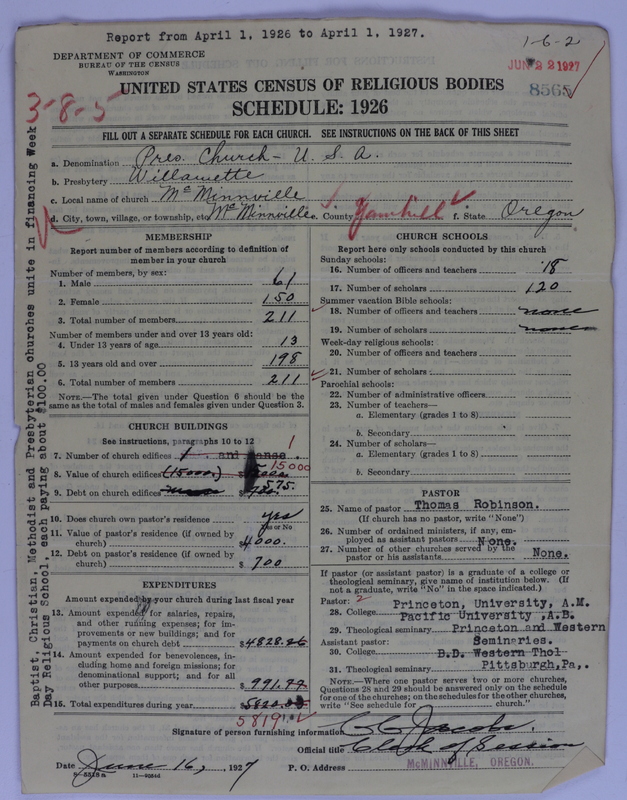 Report from April 1, 1926 to April 1, 1927.
1-6-2
DEPARTMENT OF COMMERCE
BUREAU OF THE CENSUS
WASHINGTON
JUN 22 1927
8565
3-8-5
UNITED STATES CENSUS OF RELIGIOUS BODIES
SCHEDULE: 1926
FILL OUT A SEPARATE SCHEDULE FOR EACH CHURCH. SEE INSTRUCTIONS ON THE BACK OF THIS SHEET
a. Denomination Pres. Church - U. S. A.
b. Presbytery Willamette
c. Local name of church McMinnville
d. City, town, village, or township, etc. McMinnville e. County Yamhill f. State Oregon
Baptist, Christian, Methodist and Presbyterian churches unite in financing Week
Day Religious School, each paying about $100.00
MEMBERSHIP
Report number of members according to definition of
member in your church
Number of members, by sex:
1. Male 61
2. Female 150
3. Total number of members 211
Number of members under and over 13 years old:
4. Under 13 years of age 13
5. 13 years old and over 198
6. Total number of members 211
NOTE.—The total given under Question 6 should be the
same as the total of males and females given under Question 3.
CHURCH BUILDINGS
See instructions, paragraphs 10 to 12
7. Number of church edifices 1 and manse 1
8. Value of church edifices (15000.) $ 15000
9. Debt on church edifices $ 575.
10. Does church own pastor's residence yes
Yes or No
11. Value of pastor's residence (if owned by
church) $4000.
12. Debt on pastor's residence (if owned by
church) $ 700
EXPENDITURES
Amount expended by your church during last fiscal year
13. Amount expended for salaries, repairs,
and other running expenses; for im-
provements or new buildings; and for
payments on church debt $4828.26
14. Amount expended for benevolences, in-
cluding home and foreign missions; for
denominational support; and for all
other purposes $ 991.77
15. Total expenditures during year $5820.03
5819
CHURCH SCHOOLS
Report here only schools conducted by this church
Sunday schools:
16. Number of officers and teachers 18
17. Number of scholars 120
Summer vacation Bible schools:
18. Number of officers and teachers none
19. Number of scholars none
Week-day religious schools:
20. Number of officers and teachers
21. Number of scholars
Parochial schools:
22. Number of administrative officers
23. Number of teachers—
a. Elementary (grades 1 to 8)
b. Secondary
24. Number of scholars—
a. Elementary (grades 1 to 8)
b. Secondary
PASTOR
25. Name of pastor Thomas Robinson.
(If church has no pastor, write "None")
26. Number of ordained ministers, if any, em-
ployed as assistant pastors None.
27. Number of other churches served by the
pastor or his assistants None.
If pastor (or assistant pastor) is a graduate of a college or
theological seminary, give name of institution below. (If
not a graduate, write "No" in the space indicated.)
Pastor: 2
28. College Princeton, University, A.M.
Pacific University ,A.B.
29. Theological seminary Princeton and Western
Assistant pastor: Seminaries.
30. College B.D. Western Thol
31. Theological seminary Pittsburgh,Pa,.
NOTE.—Where one pastor serves two or more churches,
Questions 28 and 29 should be answered only on the schedule
for one of the churches; on the schedules for the other churches,
write "See schedule for church."
Signature of person furnishing information C C Jacobs.
Official title Clerk of Session
Date June 16, 1927 P. O. Address McMINNVILLE, OREGON.